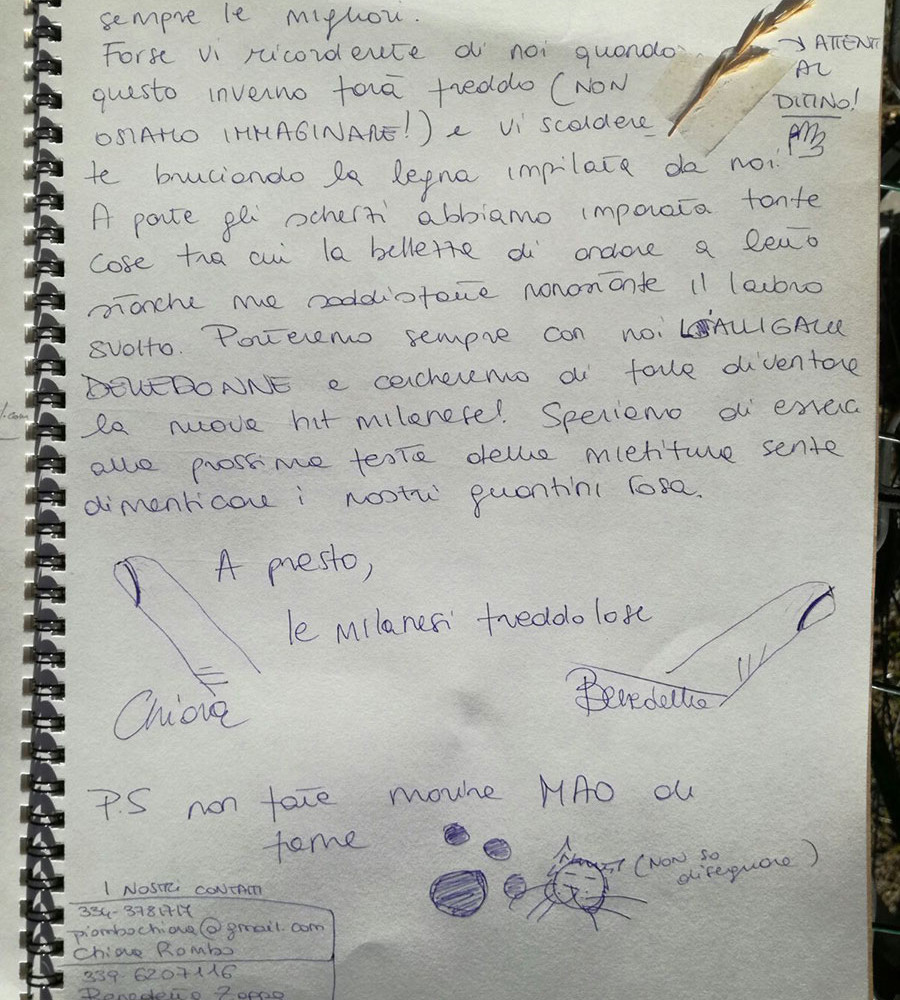 sempre le migliori.
Forse vi ricorderete di noi quando
questo inverno farà freddo (NON
OSIAMO IMMAGINARE!) e vi scaldere
te bruciando la legna impilata da noi!
→ ATTENTI
AL
DITINO!
A parte gli scherzi abbiamo imparato tante
cose tra cui la bellezza di andare a letto
stanche ma soddisfatte nonostante il lavoro
svolto. Porteremo sempre con noi L'ALLIGALLI
DELLEDONNE e cercheremo di farla diventare
la nuova hit milanese! Speriamo di esserci
alla prossima festa della mietitura senza
dimenticare i nostri guantini rosa.
A presto,
le milanesi freddolose
Chiara
Benedetta
P.S non fate morire MAO di
fame
(NON SO
disegnare)
I NOSTRI CONTATTI
334-3781717
piombochiara@gmail.com
Chiara Piombo
339-6207116
Benedetta Zoppa
.com